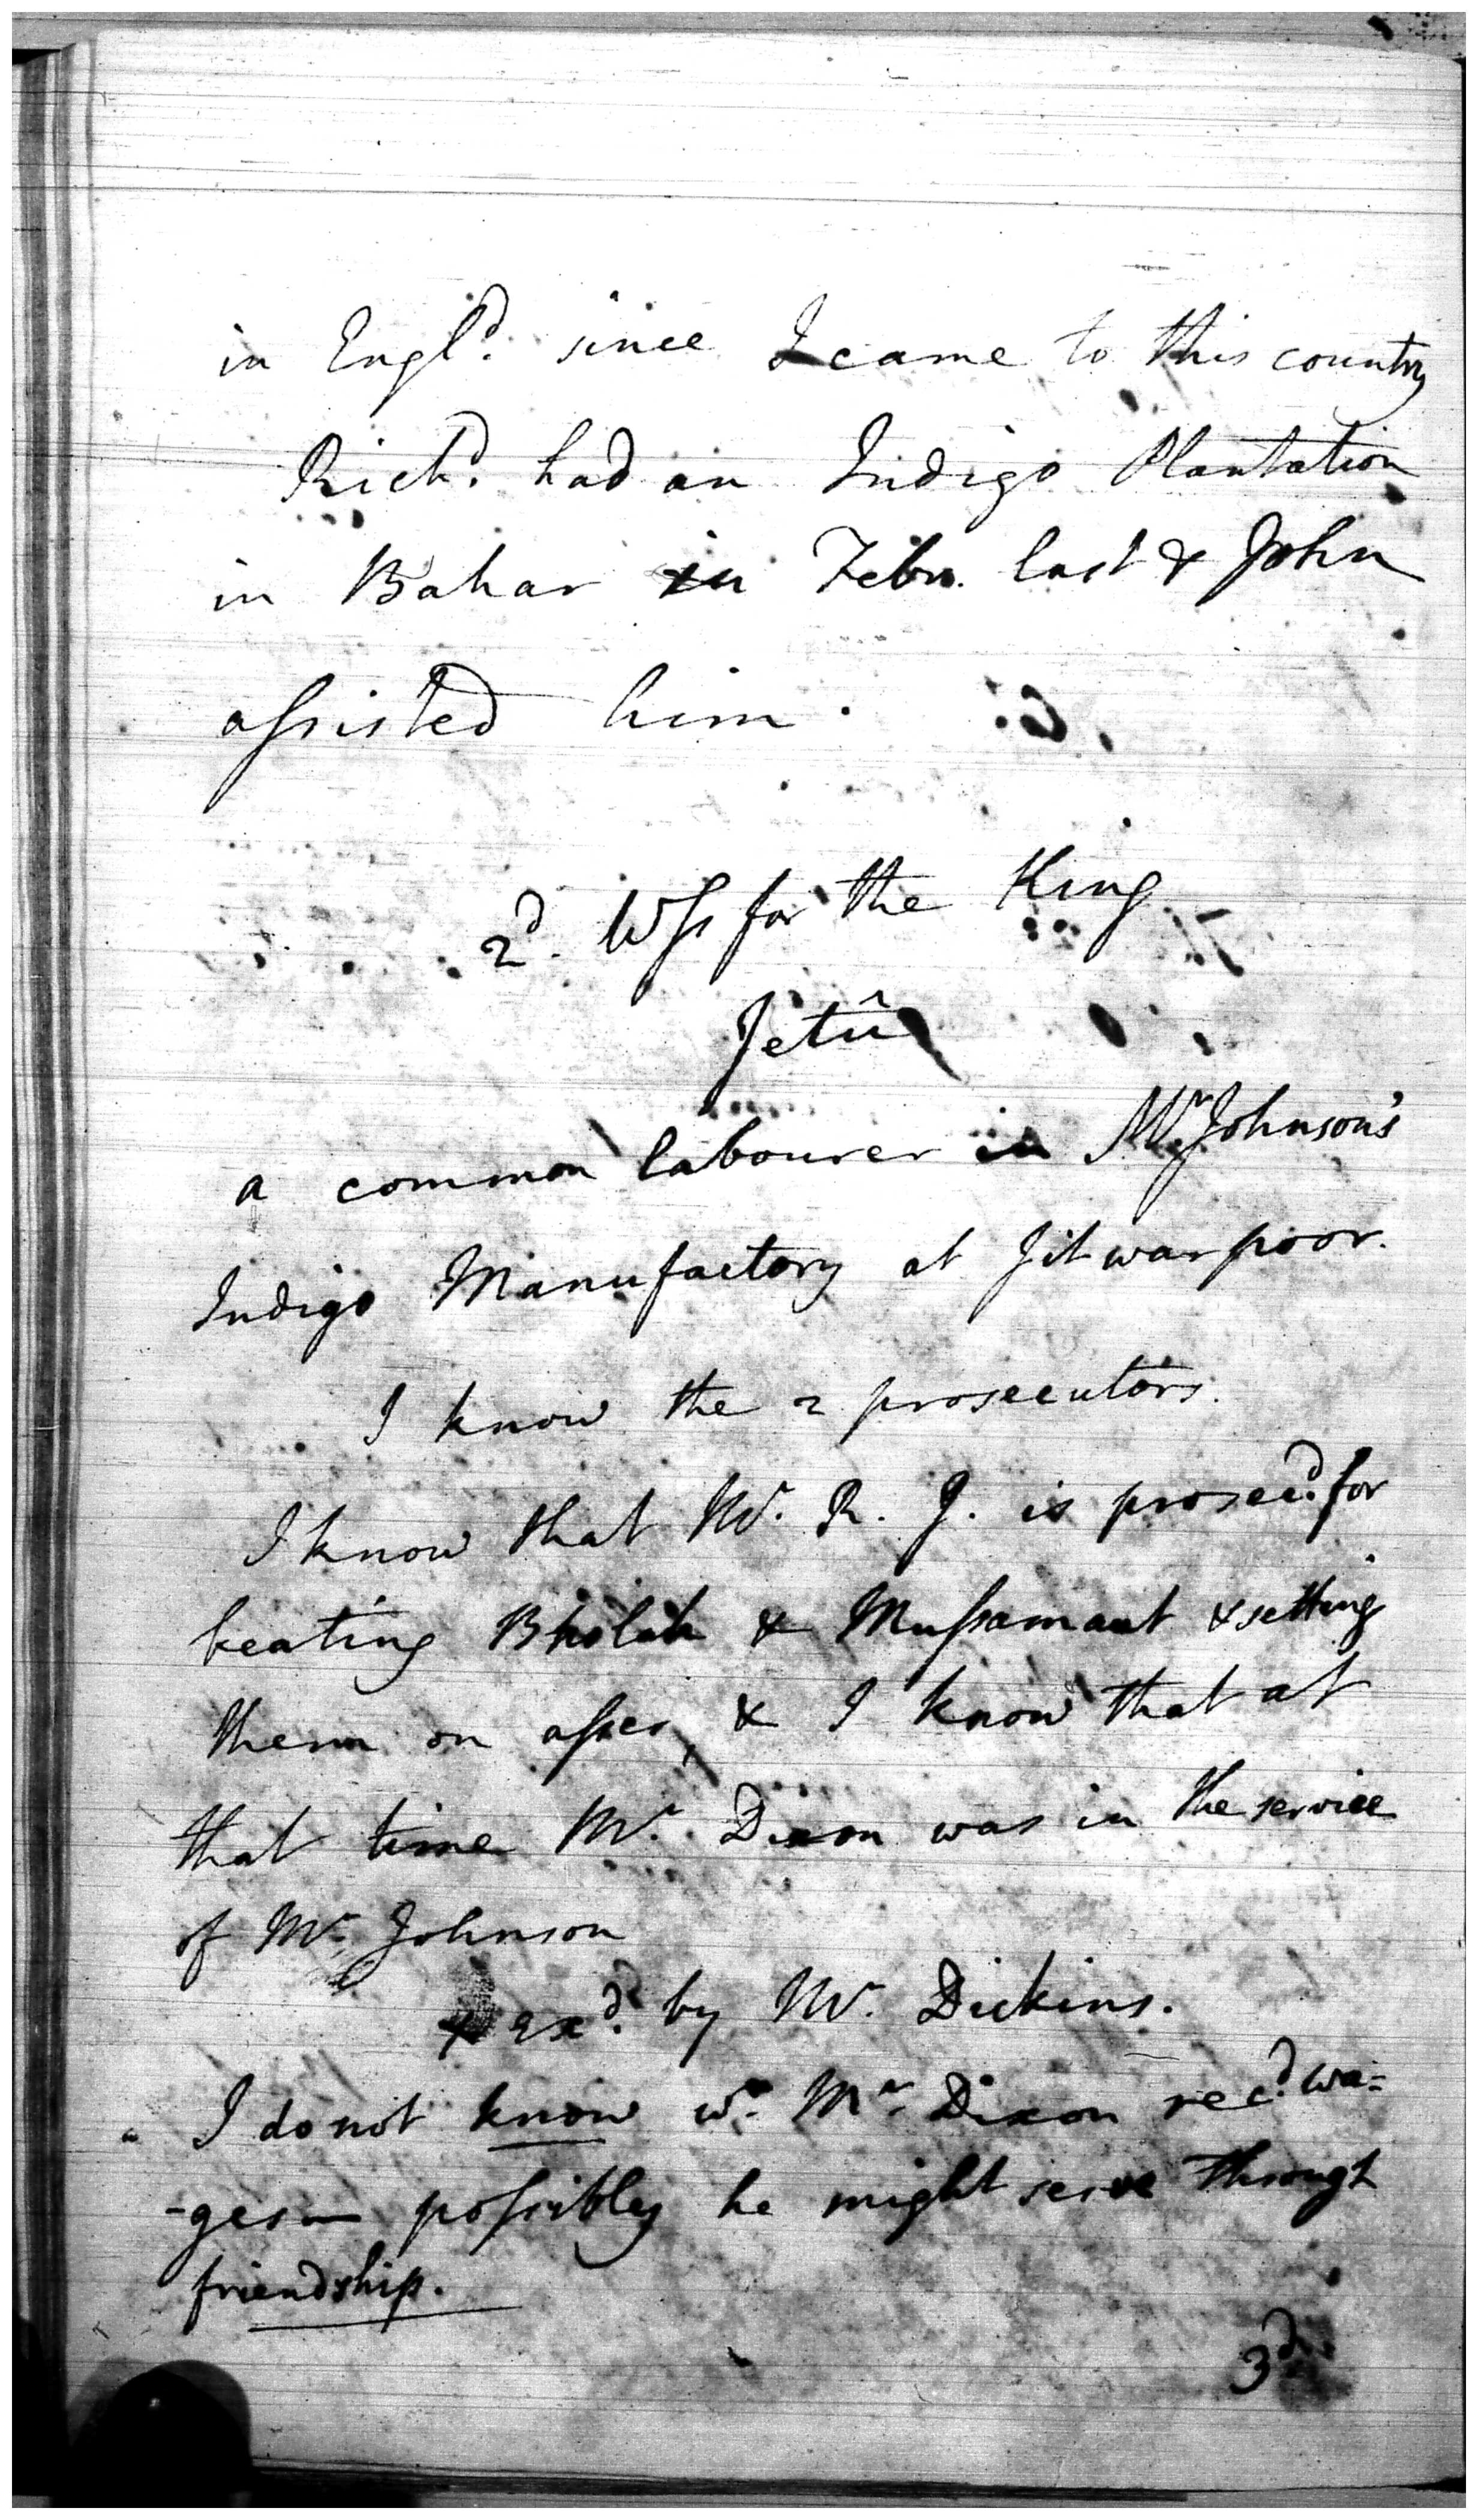 in Engld. since I came to this country
Richd. had an Indigo Plantation
in Bahar in Febry. last & John
assisted him.
2d. Wss for the King
Jetû
a common labourer in Mr. Johnson's
Indigo Manufactory at Jitwarpoor.
I know the 2 prosecutors.
I know that Mr. R. J. is prosecd. for
beating Bholah & Mussamaut & setting
them on asses, & I know that at
that time Mr. Dixon was in the service
of Mr. Johnson
exd. by Mr. Dickins.
I do not know wr. Mr. Dixon recd. wa=
-ges— possibly he might serve through
friendship.
3d